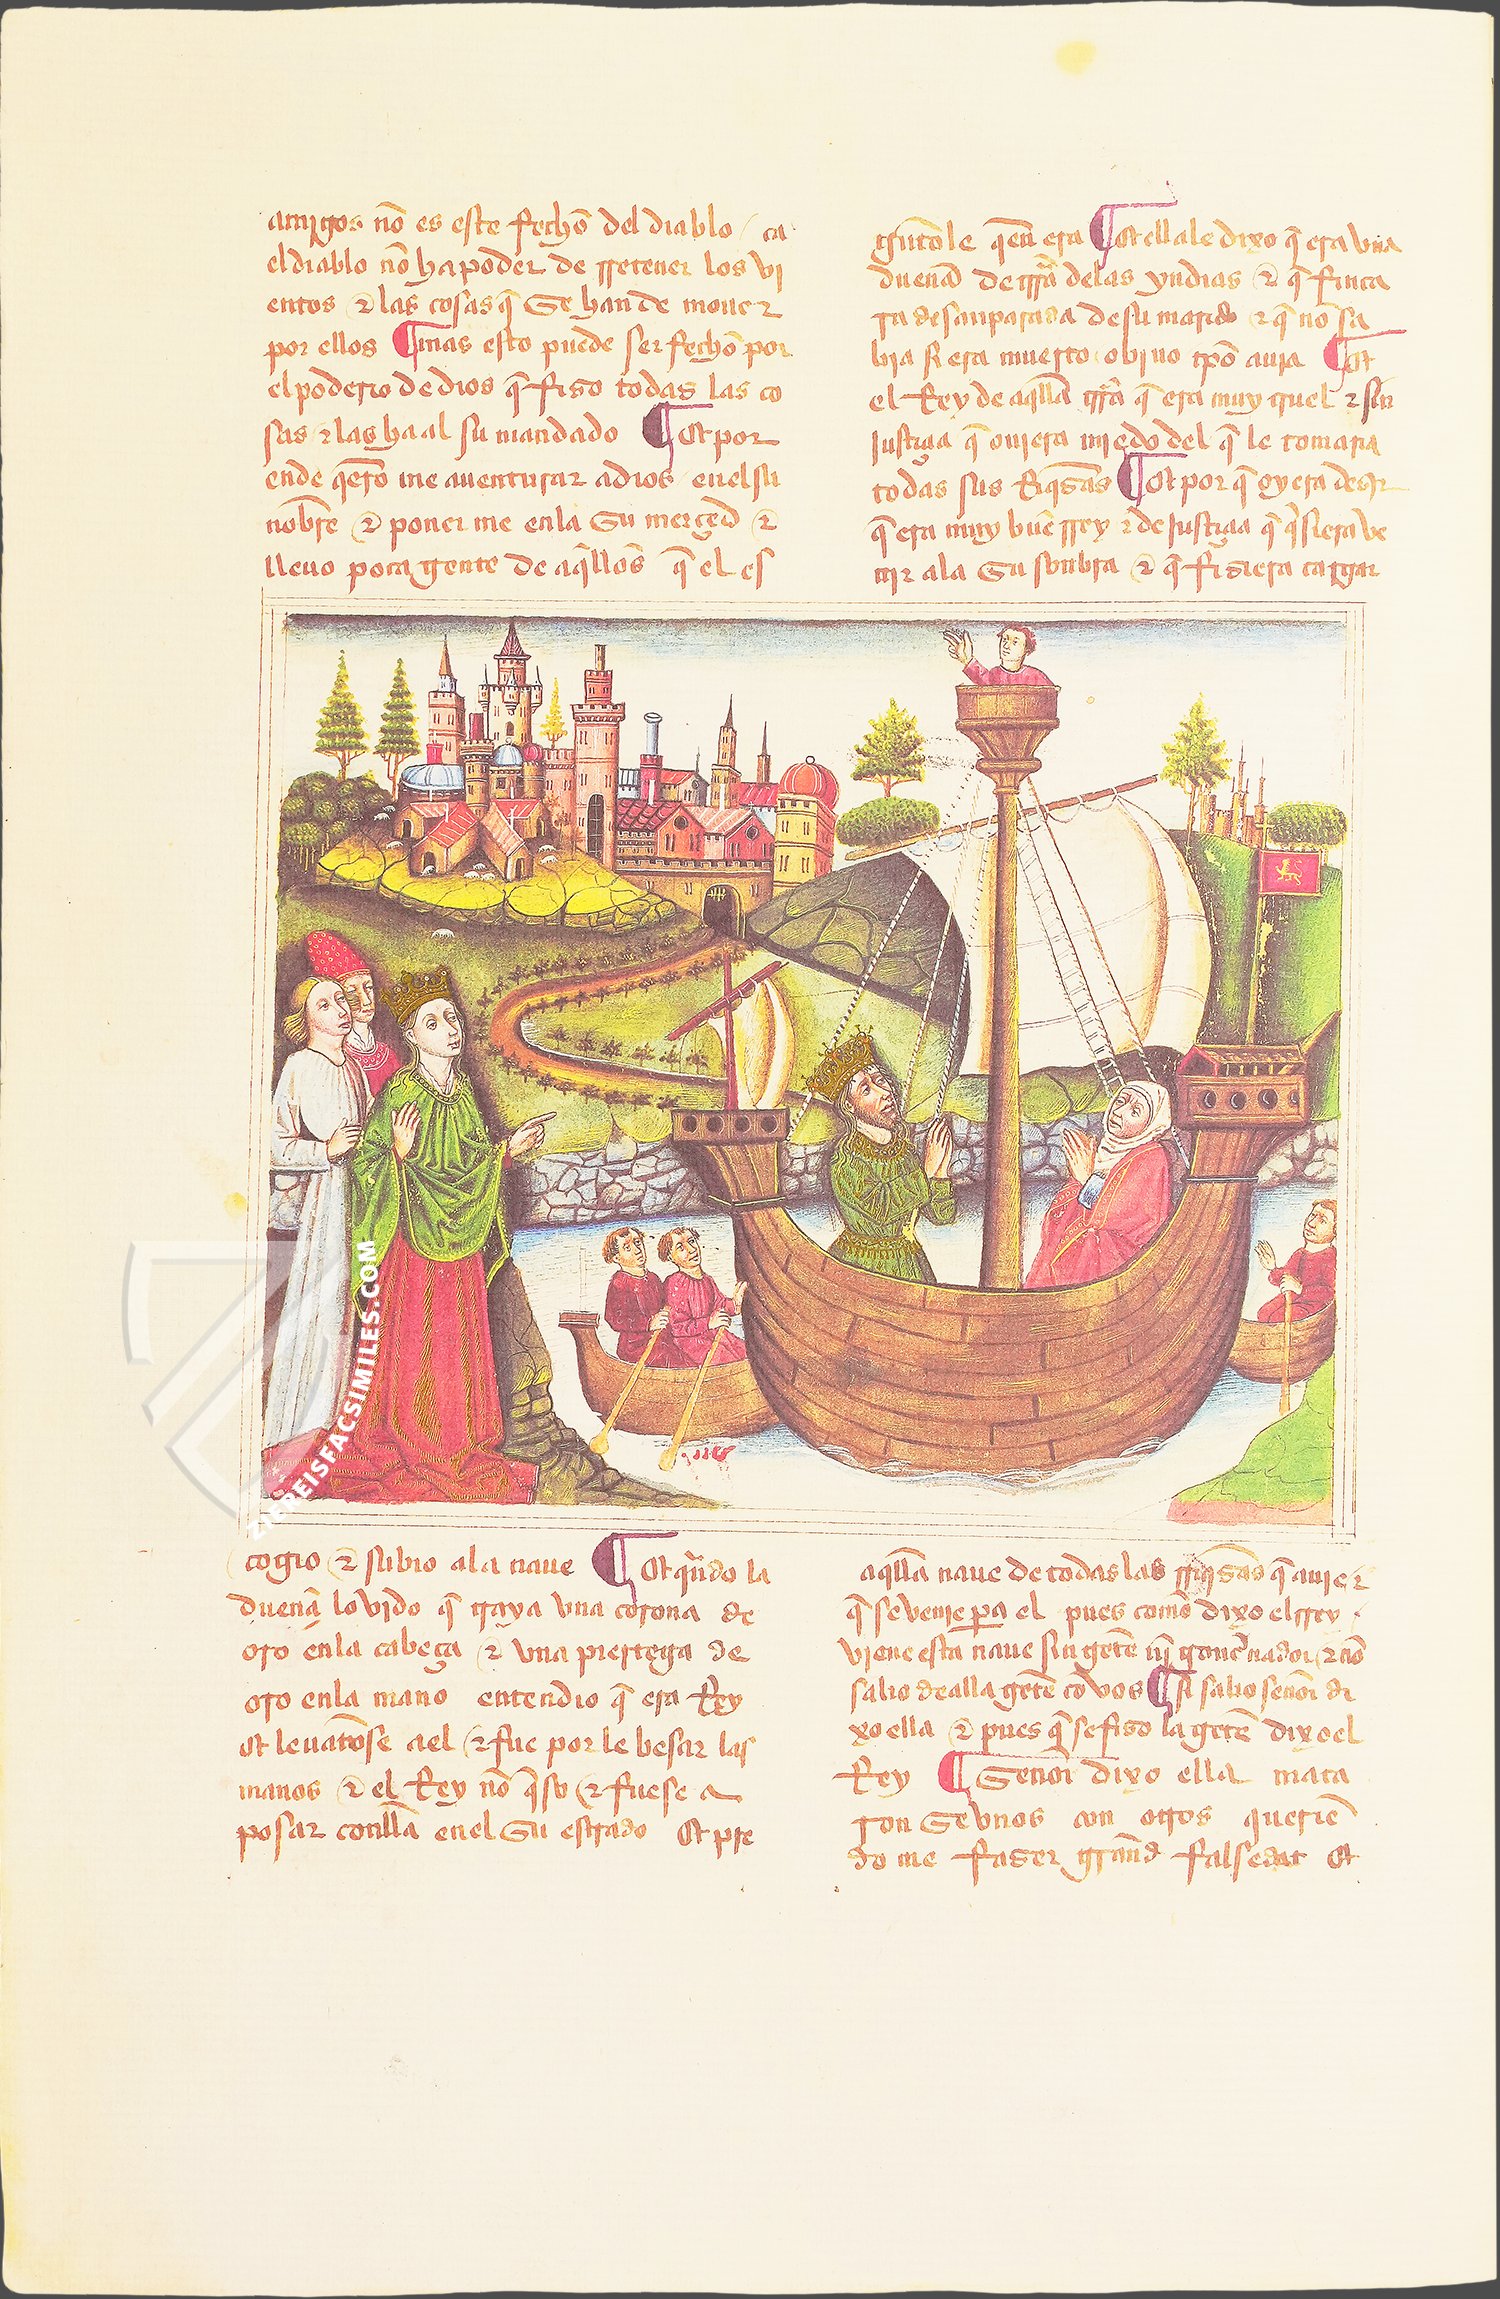 amigos nō es este fechō del diablo / ca
el diablo nō ha poder de rretener los vi
entos ⁊ las cosas q̄ se han de mouer
por ellos ¶ mas esto puede ser fechō por
el poderio de dios q̄ fizo todas las co
sas ⁊ las ha al su mandado ¶ Et por
ende q̄ero me auenturar a dios en el su
nōbre ⁊ poner me en la su merçed ⁊
lleuo poca gente de aq̄llos q̄ el es
cogio ⁊ subio a la naue ¶ Et q̄ndo la
dueña lo vido q̄ traya vna corona de
oro en la cabeça ⁊ vna piertega de
oro en la mano entendio q̄ era Rey
Et leuātose a el ⁊ fue por le besar las
manos ⁊ el Rey nō q̄so ⁊ fuese a
posar con ella en el su estrado Et pre
gūtole q̄en era ¶ Et ella le dixo q̄ era vna
dueña de trr̄a de las yndias ⁊ q̄ finca
ra desanparada de su marido ⁊ q̄ nō sa
bia si era muerto o biuo tpō auia ¶ Et
el Rey de aq̄lla trr̄a q̄ era muy cruel ⁊ sin
justiçia q̄ ouiera miedo del q̄ le tomaria
todas sus Riq̄zas ¶ Et por q̄ oyera dezir
q̄ era muy buē rrey ⁊ de justiçia q̄ q̄siera ve
nir a la su sonbra ⁊ q̄ fiziera cargar
aq̄lla naue de todas las rriq̄zas q̄ auie ⁊
q̄ se venie pa el pues comō dixo el rrey
viene esta naue sin gētē nj̄ gouernador ⁊ nō
salio de alla gētē cō vos ¶ Si salio señor di
xo ella ⁊ pues q̄ se fizo la gētē dixo el
Rey ¶ Señor dixo ella mata
ron se vnos con otros querien
do me fazer grand falsedat Et
ZIEREISFACSIMILES.COM